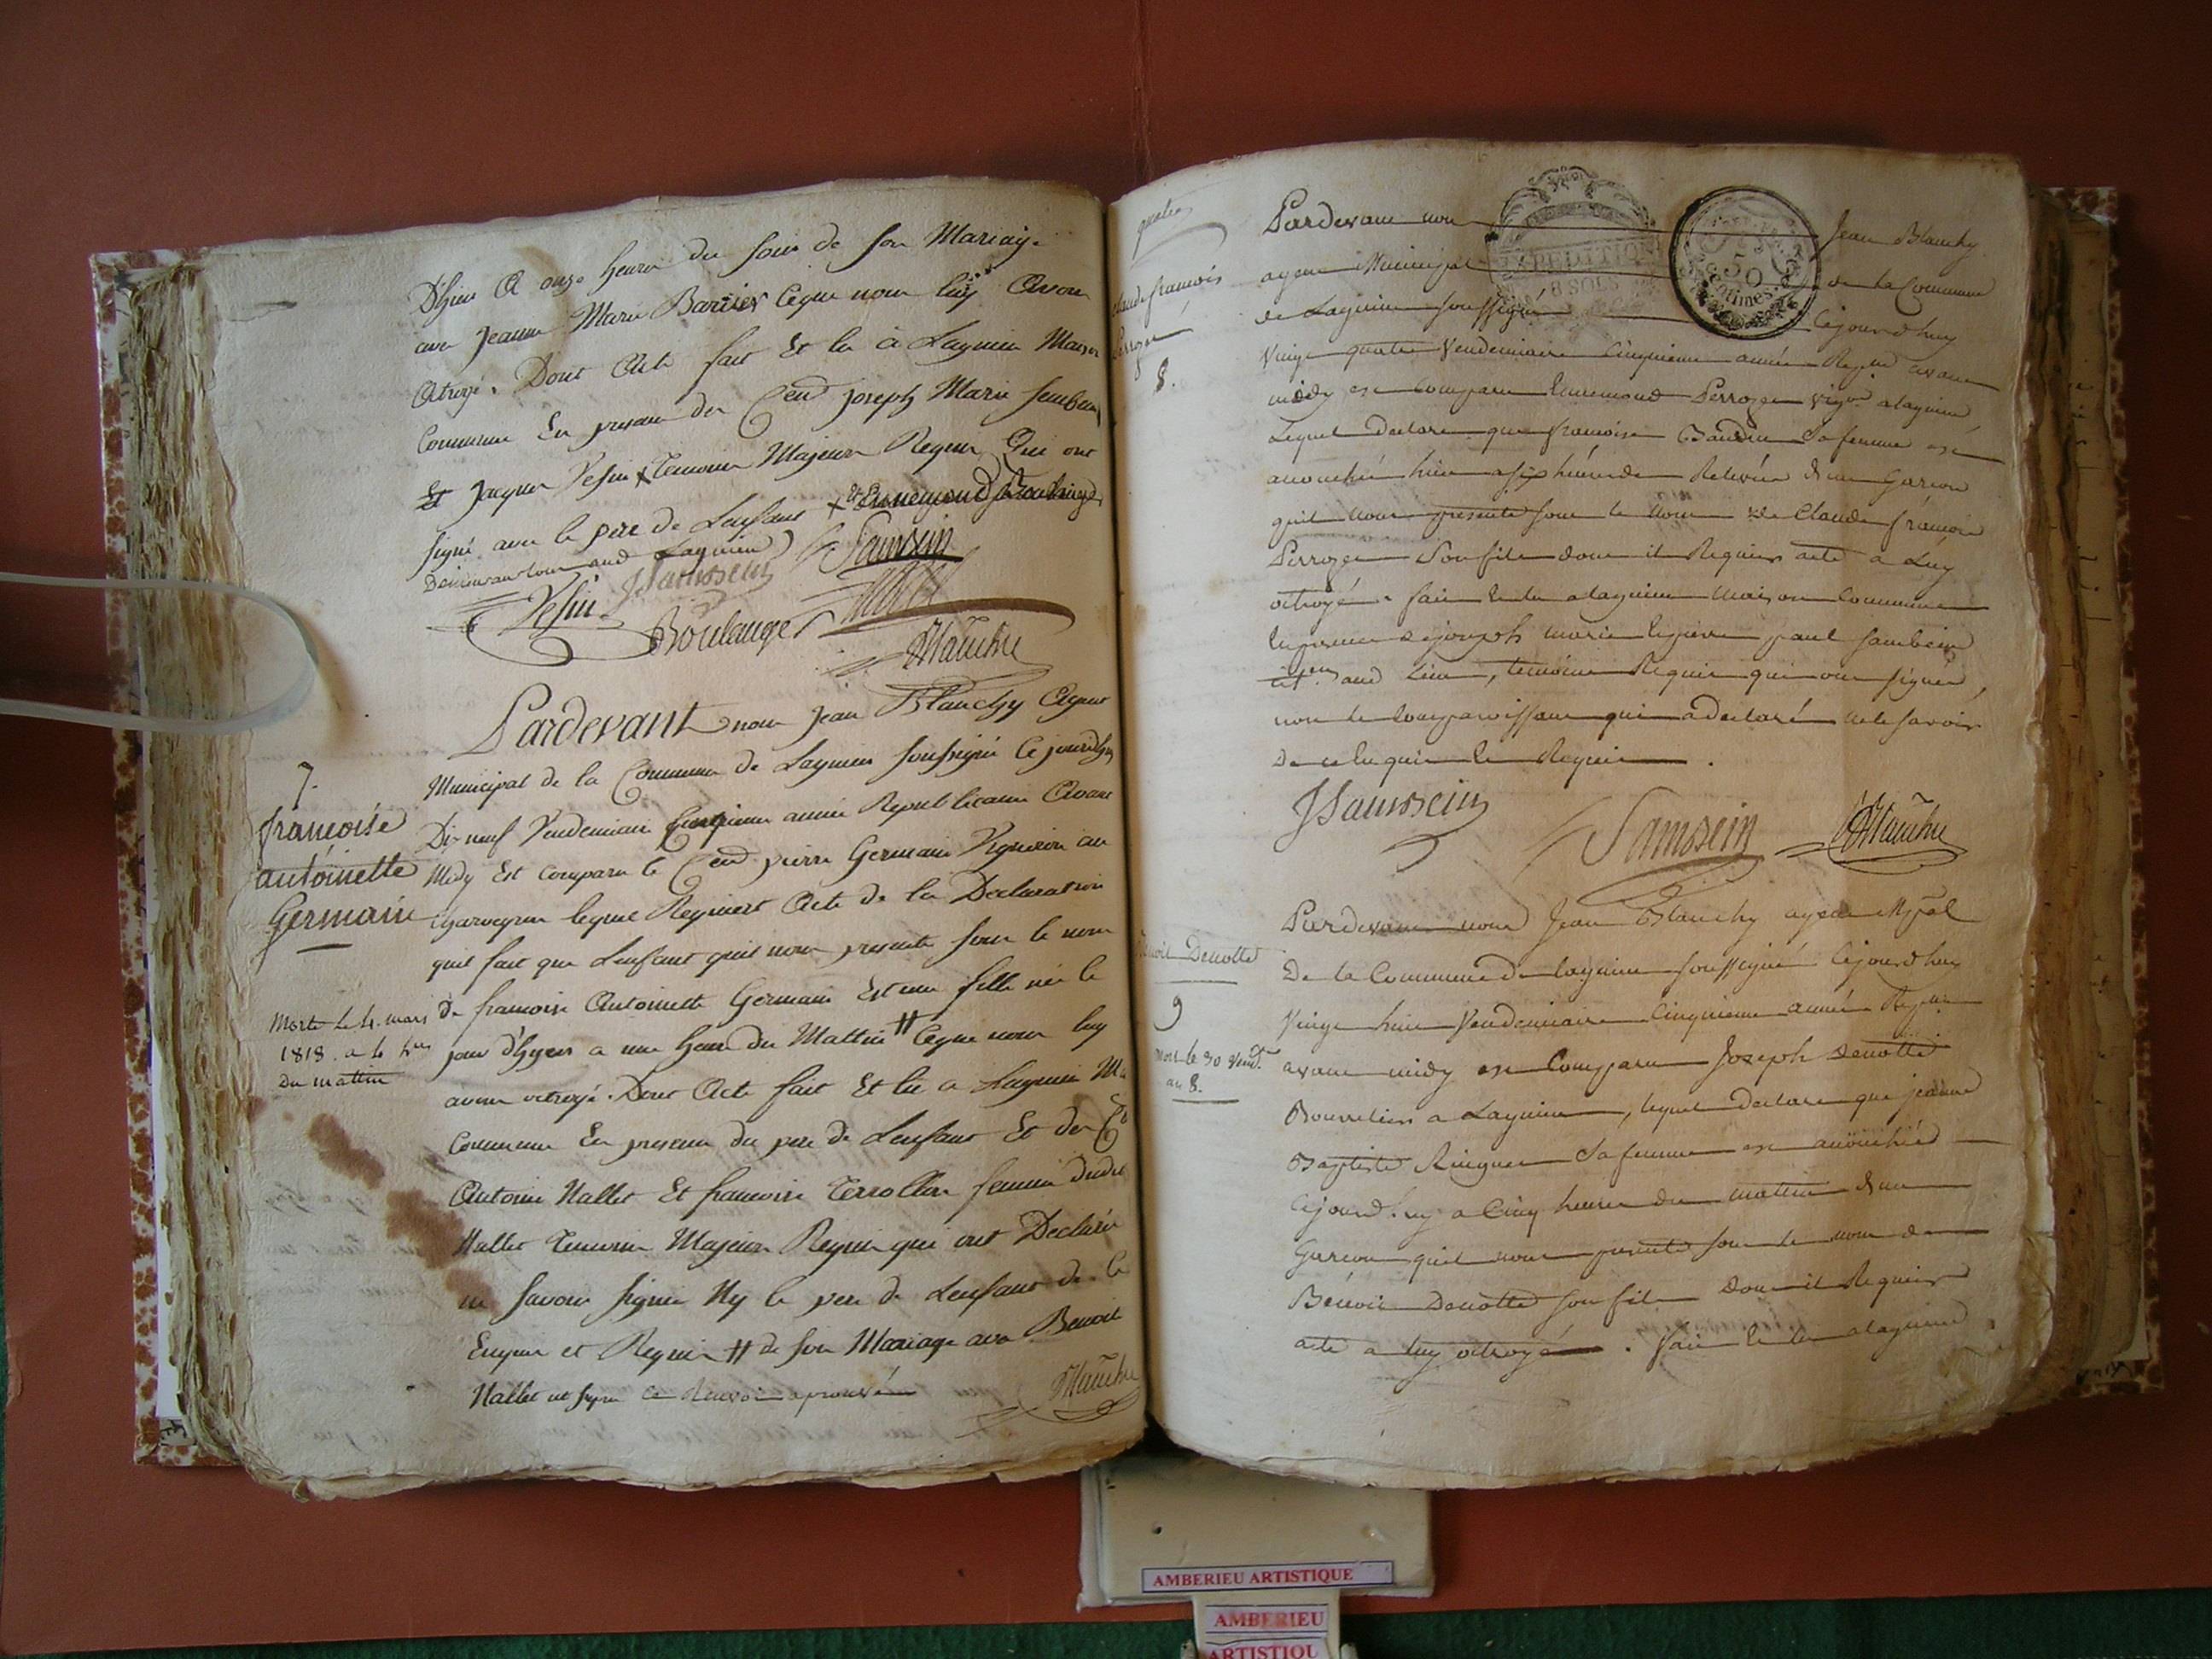 D'hier A onze heures du soir de son Mariage
avec Jeanne Marie Barrier Ceque nous luy Avons
Octroyé. Dont Acte fait Et lu à Lagnieu Maison
Commune En presence des Cens joseph Marie
Et Jacques Vesin x Temoins Majeurs Requis Qui ont
signé avec le pere de Lenfant x Et Ennemond Boulanger
Demeurant tous aud Lagnieu
Samssein
JSaussein
Vesin
Boulanger
7.
françoise
antoinette
Germain
Morte le 4. mars
1818. a 6 hres
du mattin
Pardevant nous Jean Blanchy Agent
Municipal de la Commune de Lagnieu soussigné Cejourdhuy
Dixneuf Vendemiaire Cinquieme année Republicaine Avant
Midy Est Comparu le Cen pierre Germain Vigneron au
lequel Requiert Acte de la Declaration
quil fait que Lenfant quil nous presente sous le nom
De francoise Antoinette Germain Est une fille née le
jour d'hyer a une heure du Mattin # Ceque nous luy
avons octroyé. Dont Acte fait Et lu a Lagnieu
Commune En presence du pere de Lenfant Et des
Antoine Nallet Et francoise femme dudit
Nallet Temoins Majeurs Requis qui ont Declaré
ne savoir signer Ny le pere de Lenfant de ce
Enquis et Requis # de son Mariage avec Benoit
Nallet ce Renvoi aprouvé
quatre
Claude francois
Perrozet
8.
Pardevant nous Jean Blanchy
EXPEDITION
8 SOLS
50
Centimes
agent Municipal de la Commune
de Lagnieu soussigné Cejourd huy
Vingt quatre Vendemiaire Cinquieme année Repne avant
midy est Comparu Ennemond Perrozet vigon a lagnieu
Lequel declare que francoise Baudin sa femme est
accouchée hier a six heures de Relevée d'un Garcon
quil nous presente sous le nom de Claude francois
Perrozet son fils dont il Requiert acte a Luy
octroyé. fait Et lu a lagnieu maison Commune
En presence de joseph marie paul
aud Lieu, temoins Requis qui ont signé,
non le Comparoissant qui a declaré ne le savoir
de ce Enquis et Requis.
JSaussein
Samssein
Benoit Denotte
9
mort le 30 Vend.
an 8.
Pardevant nous Jean Blanchy agent Mpal
De la Commune de lagnieu soussigné Cejourd huy
Vingt huit Vendemiaire Cinquieme année Repne
avant midy est Comparu Joseph Denotte
Bourrelier a Lagnieu, lequel declare que jeanne
Baptiste sa femme est accouchée
Cejourd huy a Cinq heures du mattin d'un
Garcon quil nous presente sous le nom de
Benoit Denotte son fils dont il Requiert
acte a luy octroyé. fait Et lu a lagnieu
AMBERIEU ARTISTIQUE
AMBERIEU
ARTISTIQU